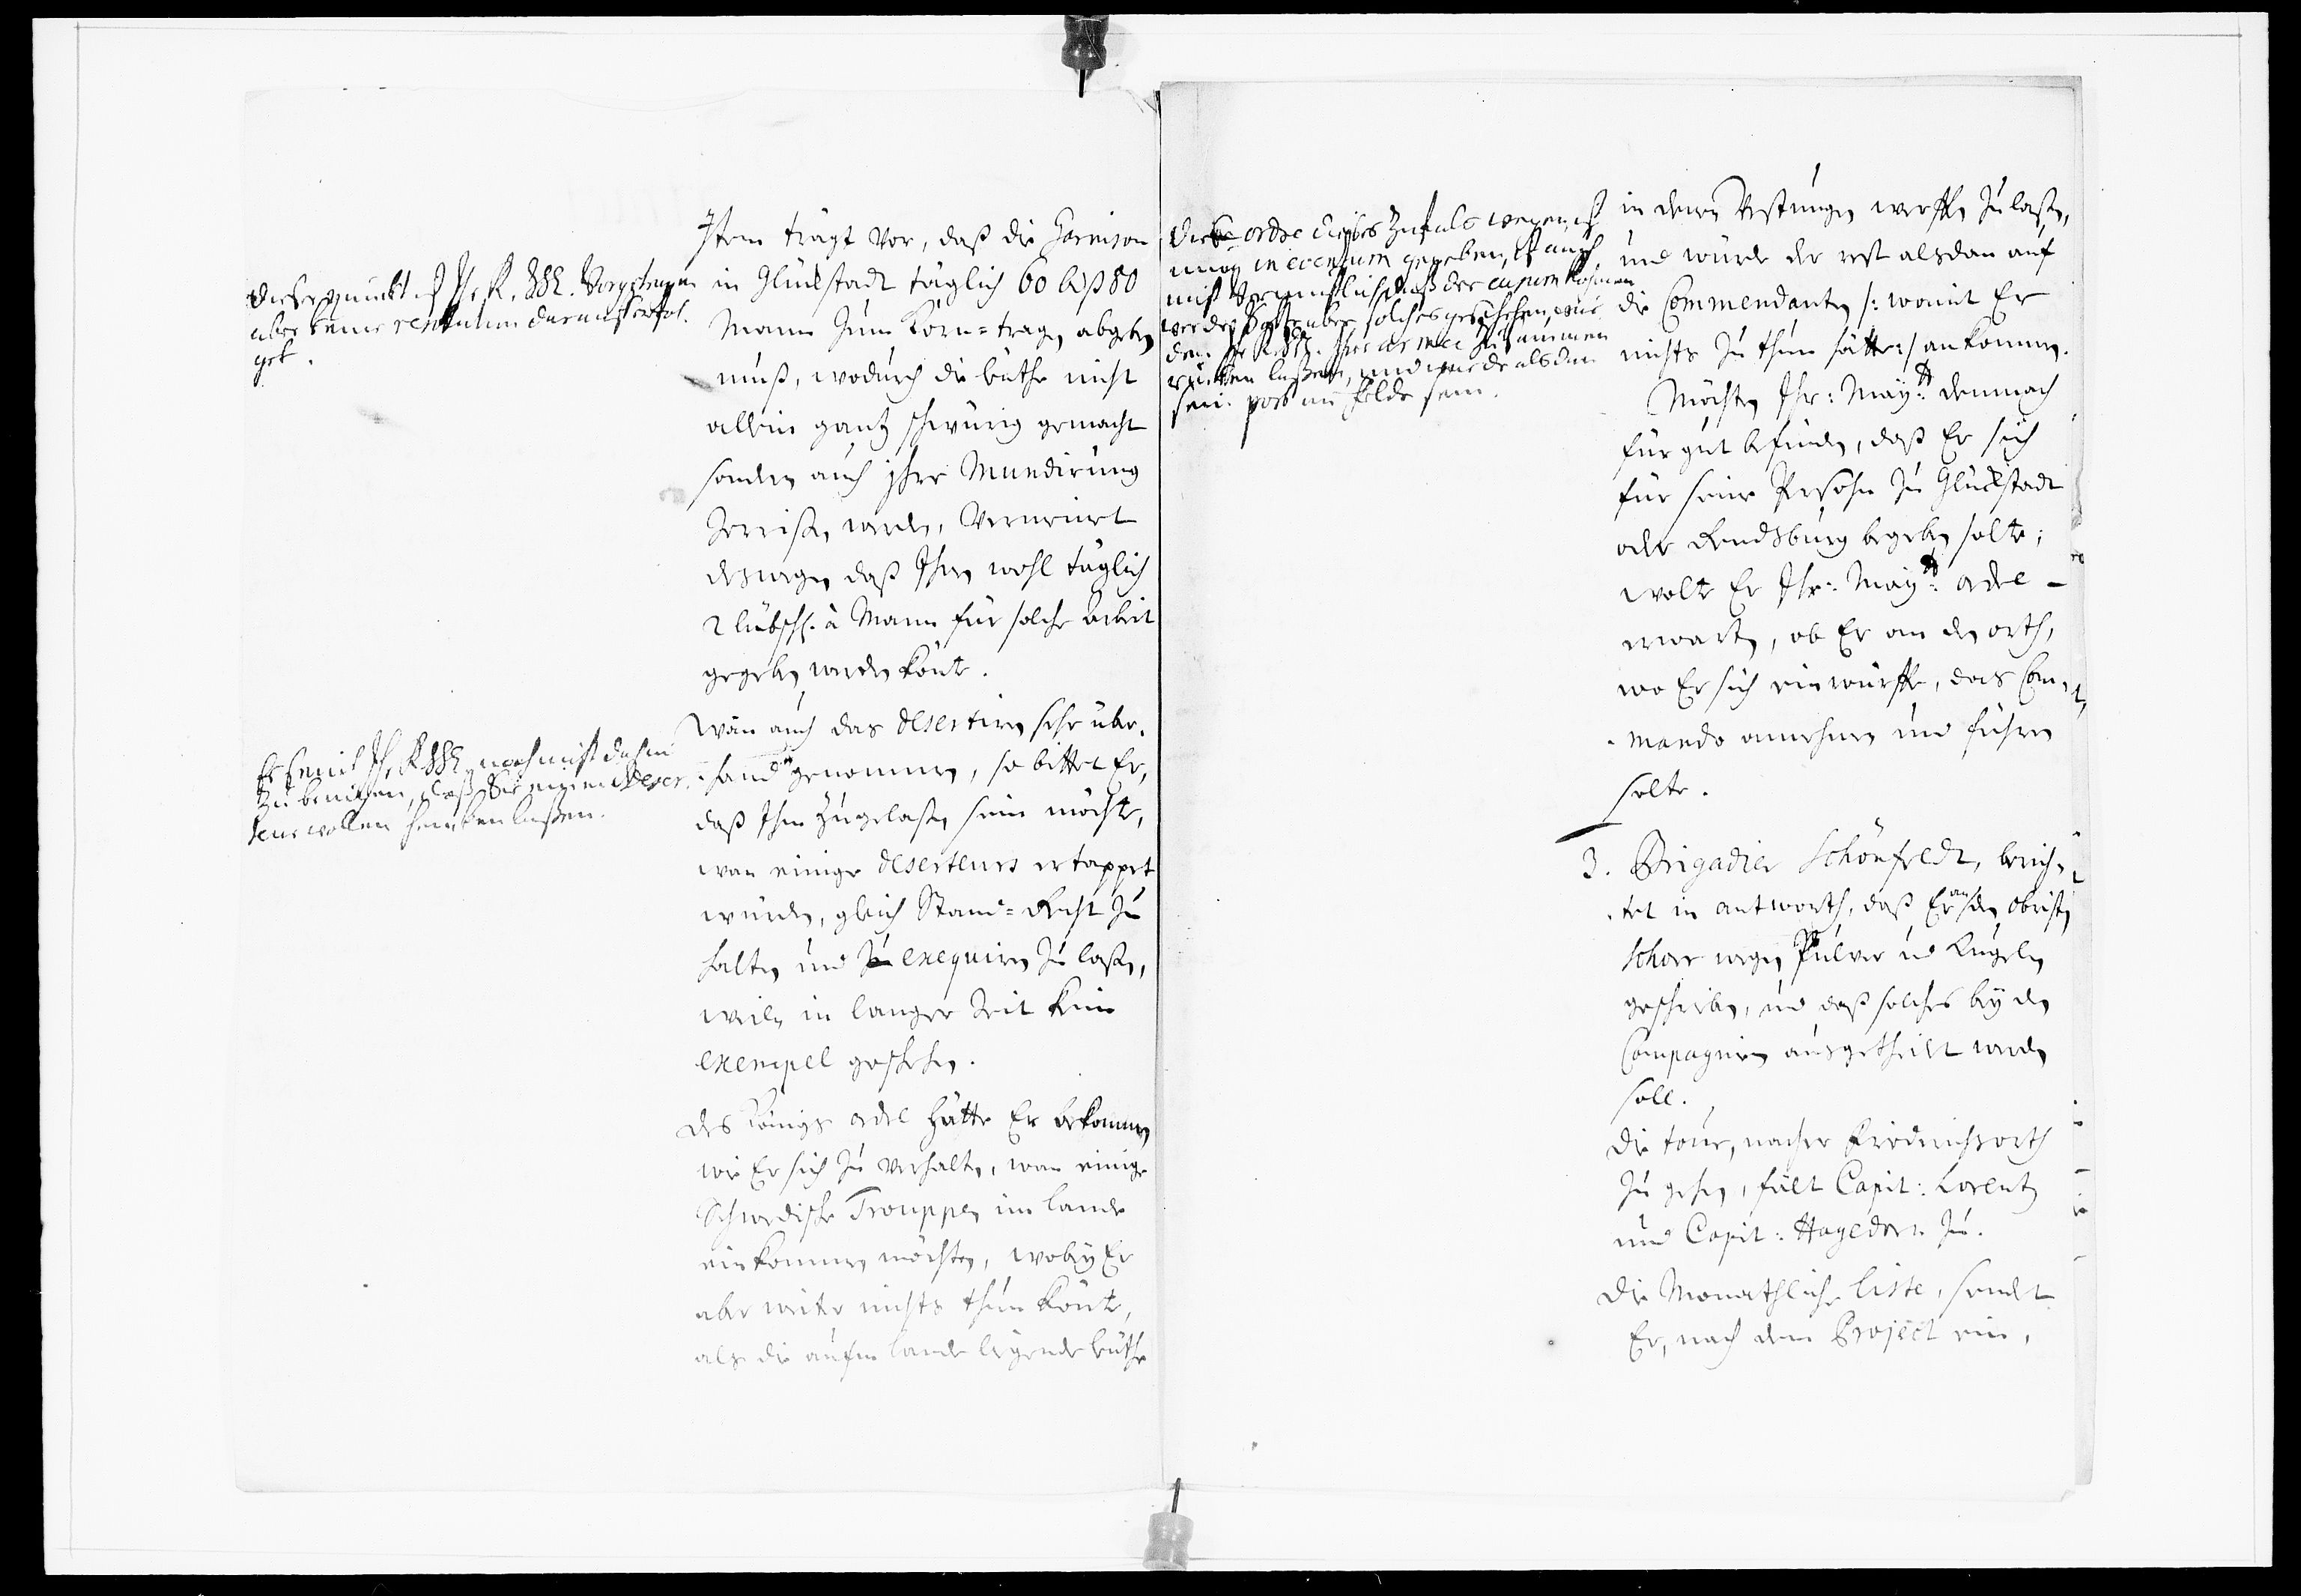 Dieser punckt ist Ihr. K. M. Vorgetragen
aber keine resolution darauf erfol-
get.
Item trägt vor, daß die Garnison
in Glückstadt täglich 60 biß 80
Mann zum Korn=tragen abgeben
muß, wodurch die leuthe nicht
allein gantz schwürig gemacht
sondern auch ihre Mundirung
Zerrißen werde, Vermeinet
deswegen daß Ihnen wohl täglich
2 lübschl. à Mann für solche Arbeit
gegeben werden könte.
Er seint Ihr K. M. noch nicht dahin
Zu bewegen, daß Sie einen Deser-
teur wollen hencken laßen.
Wan auch das desertiren sehr über-
hand genommen, so bittet Er,
daß Ihm Zugelaßen sein möchte,
wan einige deserteurs ertappet
würden, gleich Stand=Recht zu
halten und exequiren zu laßen,
weiln in langer Zeit kein
exempel geschehen.
Des Königs ordre hätte Er bekommen
wie Er sich zu verhalten, wan einige
Schwedische Trouppen im Lande
einkommen möchten, wobey Er
aber weiter nichts thun könte,
als die aufm Lande liegende leuthe
ordre wegen, ist
nur in eventum gegeben, ist auch
nicht Vermuthlich daß der casus kommen
werde, Solte aber solches geschehen, wür-
den Ihr K. M. Ihre armee Zusammen
rücken laßen, und würde alsdan
sein post im Felde sein.
in denen Vestungen werffen zu laßen,
und würde der rest alsdan auf
die Commendanten /: womit Er
nichts zu thun hätte :/ ankommen.
Möchten Ihr: Mayt: demnach
für gut befinden, daß Er sich
für seine Persohn zu Glückstadt
oder Rendsburg begeben solte;
wolte Er Ihr: Mayt: ordre
erwarten, ob Er an den orth,
wo Er sich einwürffe, das Com-
mando annehmen und führen
solte.
3. Brigadier Schönfeldt, berich-
tet in antworth, daß Er an den Obristen
Schorr wegen Pulver und Kugeln
geschrieben, und daß solches bey den
Compagnien ausgetheilet werden
soll.
Die tour, nacher Friedrichsorth
zu gehen, fält Capit: Lorentz
und Capit: Hagedorn zu.
Die Monathliche liste, sendet
Er, nach dem Project ein,